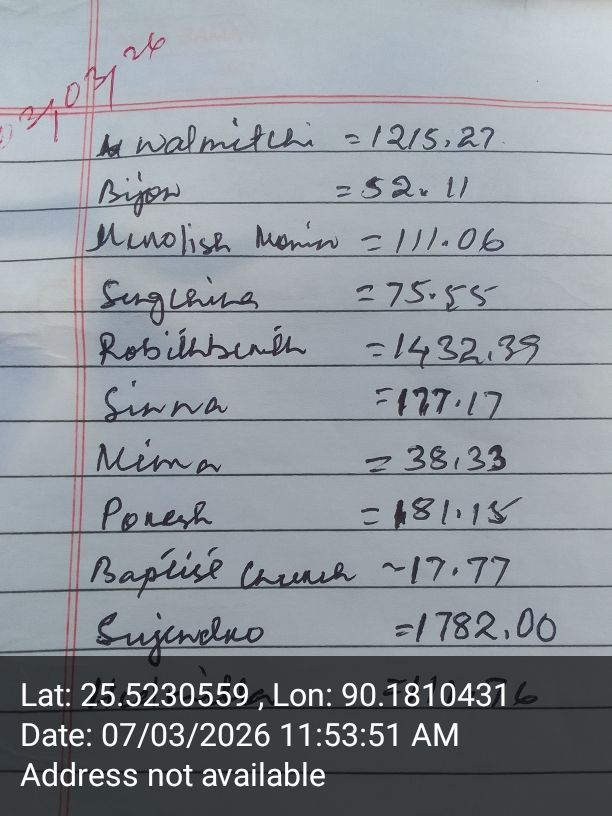 03/03/26
Nwalmitchi = 1215.27
Bijon = 52.11
Monin = 111.06
Sengchina = 75.55
Robithbenith = 1432.39
Sinna = 177.17
Nima = 38.33
Poresh = 181.15
Baptist Church ~17.77
Sujendro = 1782.00
Lat: 25.5230559 , Lon: 90.1810431
Date: 07/03/2026 11:53:51 AM
Address not available